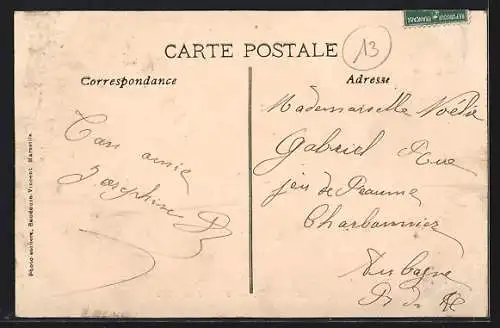 CARTE POSTALE
13
Correspondance
Adresse
Ton amie
Joséphine
Mademoiselle Noélie
Gabriel Rue
jeu de Paume
Charbonnier
Aubagne
B. d. R